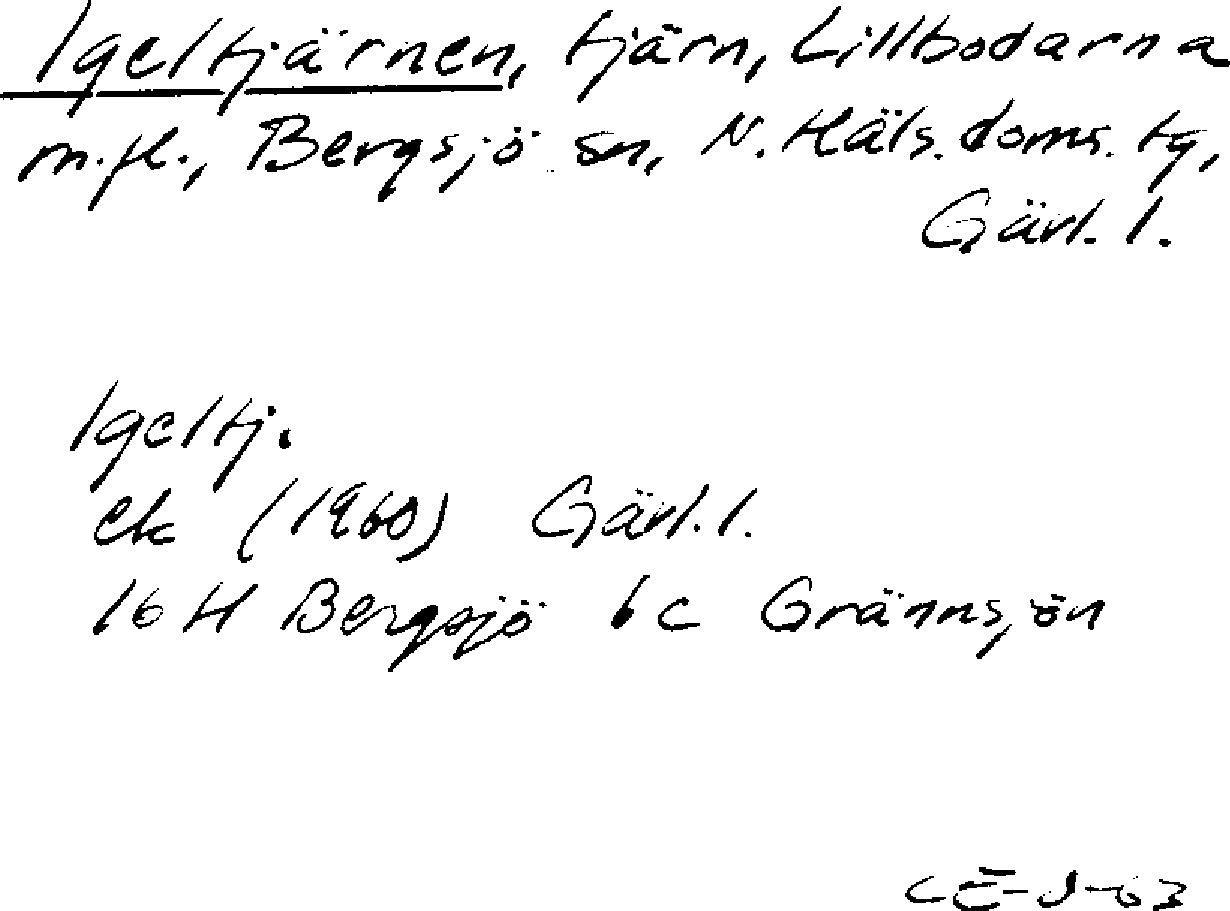 Igeltjärnen, tjärn, Lillbodarna
m.fl., Bergsjö sn, N. Häls. doms. tg,
Gävl. l.
Igeltj.
ek (1960) Gävl. l.
16 H Bergsjö 6 c Grännsjön